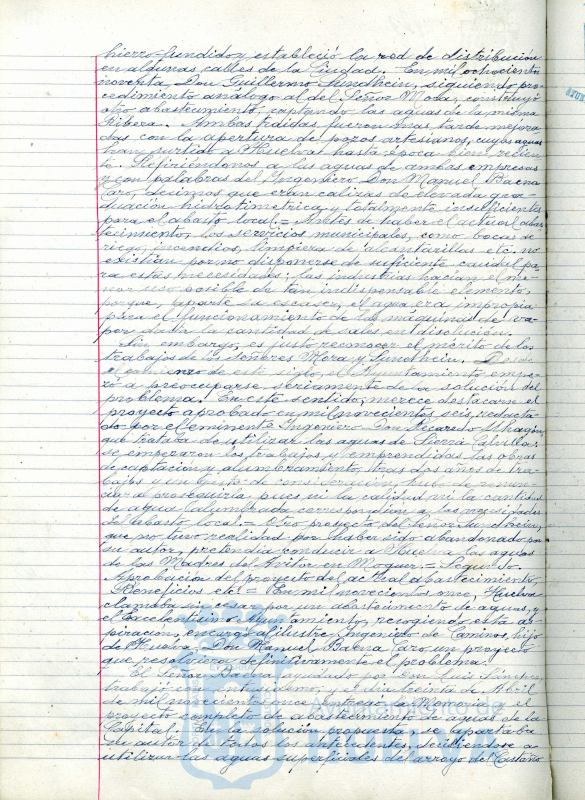 hierro fundido y estableció la red de distribución
en algunas calles de la Ciudad. En mil ochocientos
noventa Don Guillermo Sundheim, siguiendo pro-
cedimiento análogo al del Señor Mora, construyó
otro abastecimiento, captando las aguas de la misma
Ribera. Ambas traidas fueron mas tarde mejora-
das con la apertura de pozos artesianos, cuyas aguas
han surtido a Huelva hasta época bien recien-
te. Refiriéndonos a las aguas de ambas empresas
y con palabras del Ingeniero Don Manuel Baena
Caro, decimos que eran calizas de elevada gra-
duación hidrotimetrica y totalmente insuficientes
para el abasto local.= Antes de haber el actual abas-
tecimiento, los servicios municipales, como bocas de
riego, incendios, limpieza de alcantarillas etc. no
existian por no disponerse de suficiente caudal pa-
ra estas necesidades; las industrias hacian el me-
nor uso posible de tan indispensable elemento,
porque, aparte su escasez, el agua era impropia
para el funcionamiento de las máquinas de va-
por dada la cantidad de sales en disolución.
Sin embargo, es justo reconocer el mérito de los
trabajos de los señores Mora y Sundheim. Desde
el comienzo de este siglo, el Ayuntamiento empe-
zó a preocuparse seriamente de la solución del
problema. En este sentido, merece destacarse el
proyecto aprobado en mil novecientos seis, redacta-
do por el eminente Ingeniero Don Recaredo Uhagón,
que trataba de utilizar las aguas de Sierra Calvilla:
se empezaron los trabajos y emprendidas las obras
de captación y alumbramiento, tras dos años de tra-
bajos y un gasto de consideración, hubo de renun-
ciar al proseguirla pues ni la calidad ni la cantidad
de agua alumbrada correspondian a las necesidades
del abasto local.= Otro proyecto del Señor Sundheim,
que no tuvo realidad por haber sido abandonado por
su autor, pretendia conducir a Huelva las aguas
de las Madres del Avitor en Moguer.= Segundo.
Aprobación del proyecto del actual abastecimiento,
Beneficios etc.= En mil novecientos once, Huelva
clamaba sin cesar por un abastecimiento de aguas, y
el Excelentísimo Ayuntamiento, recogiendo esta as-
piración, encargó al ilustre Ingeniero de Caminos, hijo
de Huelva, Don Manuel Baena Caro un proyecto
que resolviera definitivamente el problema.
El Señor Baena, ayudado por Don Luis
trabajó con entusiasmo, y el dia treinta de Abril
de mil novecientos once el
proyecto completo de abastecimiento de aguas de la
Capital. En la solución propuesta se apartaba
su autor de todos los antecedentes, decidiéndose a
utilizar las aguas superficiales del arroyo del Castaño
Ayuntamiento de
HUELVA